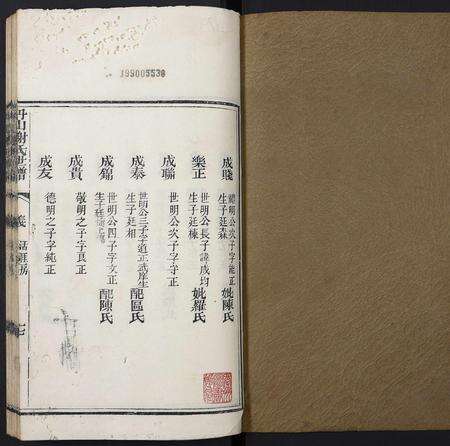 199005538
成賤
德明公次子字能正 妣陳氏
生子廷森
樂正
世明公長子諱成均 妣羅氏
生子廷棟
成聯
世明公次子字守正
成泰
世明公三子字道正武庠生 配區氏
生子廷相
成錦
世明公四子字文正 配陳氏
生子廷
成貴
敬明之子字良正
成友
德明之子字純正
丹山謝氏世譜
房
十七